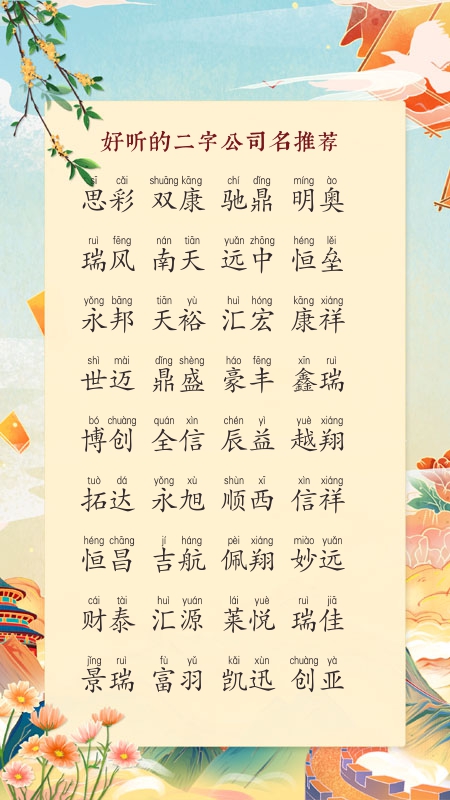 好听的二字公司名推荐
sī cǎi shuāng kāng chí dǐng míng ào
思彩 双康 驰鼎 明奥
ruì fēng nán tiān yuǎn zhōng héng lěi
瑞风 南天 远中 恒垒
yǒng bāng tiān yù huì hóng kāng xiáng
永邦 天裕 汇宏 康祥
shì mài dǐng shèng háo fēng xīn ruì
世迈 鼎盛 豪丰 鑫瑞
bó chuàng quán xìn chén yì yuè xiáng
博创 全信 辰益 越翔
tuò dá yǒng xù shùn xī xìn xiáng
拓达 永旭 顺西 信祥
héng chāng jí háng pèi xiáng miào yuǎn
恒昌 吉航 佩翔 妙远
cái tài huì yuán lái yuè ruì jiā
财泰 汇源 莱悦 瑞佳
jǐng ruì fù yǔ kǎi xùn chuàng yà
景瑞 富羽 凯迅 创亚